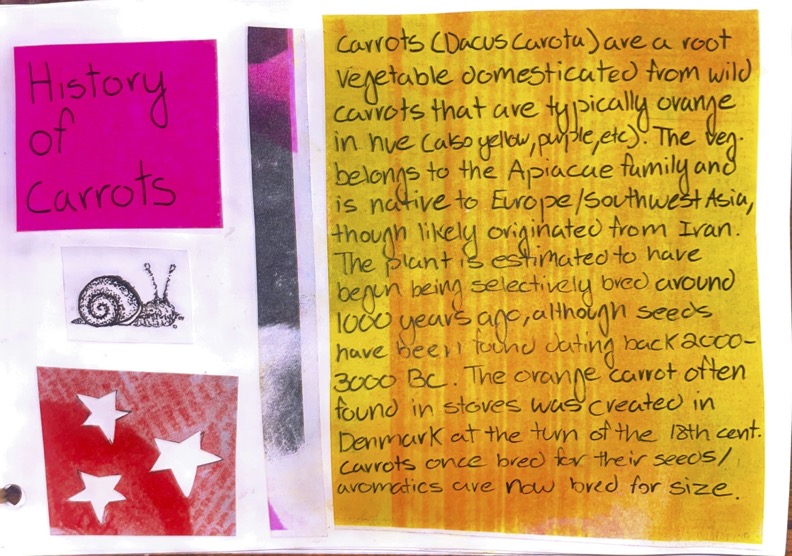 History
of
Carrots
Carrots (Dacus Carota) are a root
vegetable domesticated from wild
carrots that are typically orange
in hue (also yellow, purple, etc). The veg.
belongs to the Apiacae family and
is native to Europe/Southwest Asia,
though likely originated from Iran.
The plant is estimated to have
begun being selectively bred around
1000 years ago, although seeds
have been found dating back 2000-
3000 BC. The orange carrot often
found in stores was created in
Denmark at the turn of the 18th cent.
Carrots once bred for their seeds/
aromatics are now bred for size.